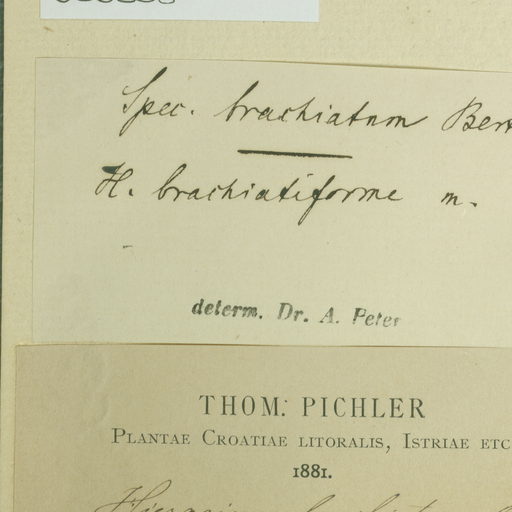 Spec. brachiatum Bert
H. brachiatiforme m.
determ. Dr. A. Peter
THOM. PICHLER
PLANTAE CROATIAE LITORALIS, ISTRIAE ETC
1881.